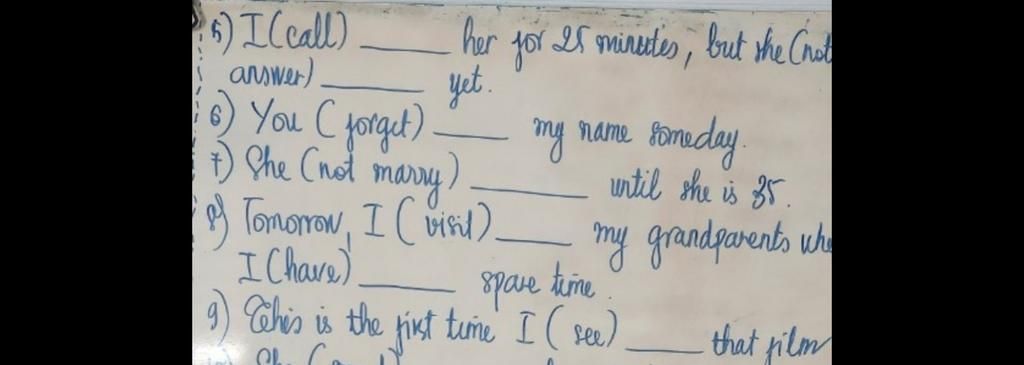 5) I (call) ______ her for 25 minutes, but she (not
answer) ______ yet.
6) You (forget) ______ my name someday.
7) She (not marry) ______ until she is 35.
8) Tomorrow, I (visit) ______ my grandparents whe
I (have) ______ spare time.
9) This is the first time I (see) ______ that film